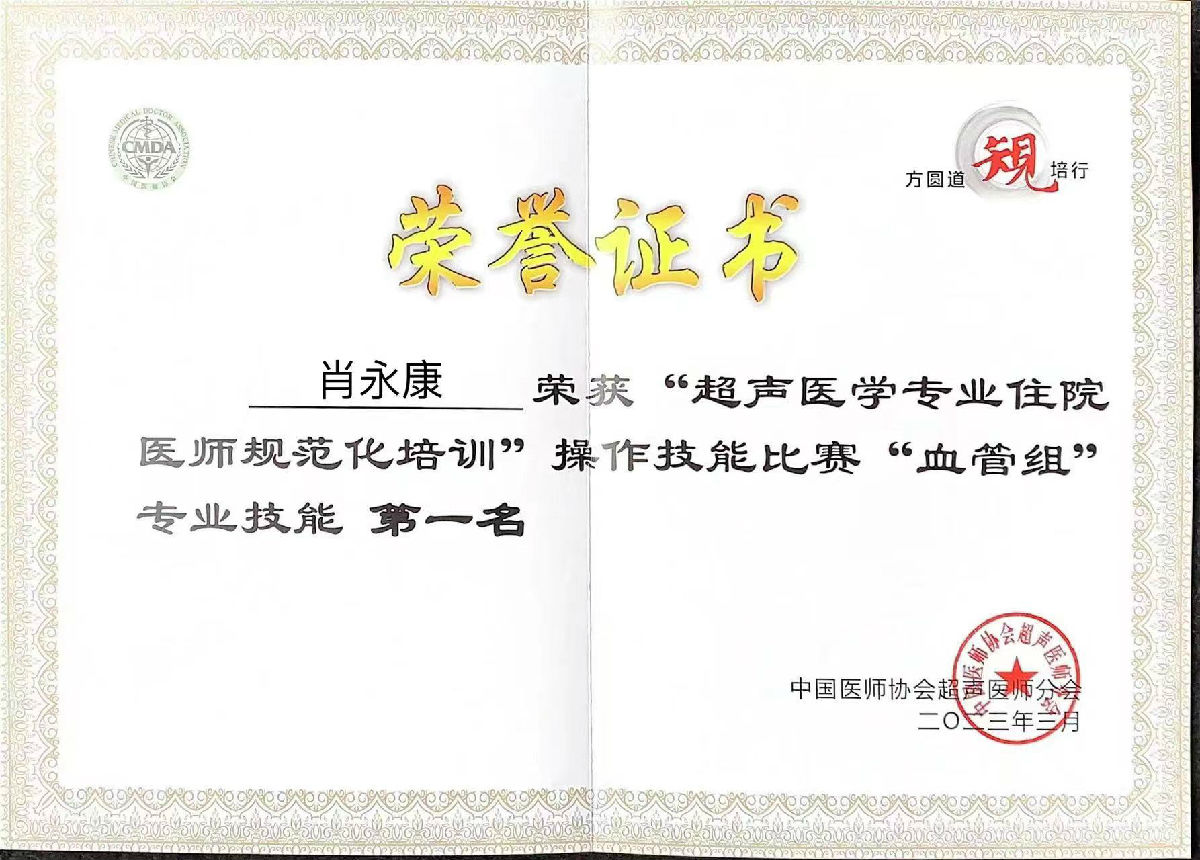 CHINESE MEDICAL DOCTOR ASSOCIATION
CMDA
中国医师协会
方圆道 規 培行
荣誉证书
肖永康 荣获“超声医学专业住院
医师规范化培训”操作技能比赛“血管组”
专业技能 第一名
中国医师协会超声医师分会
中国医师协会超声医师分会
二〇二三年三月